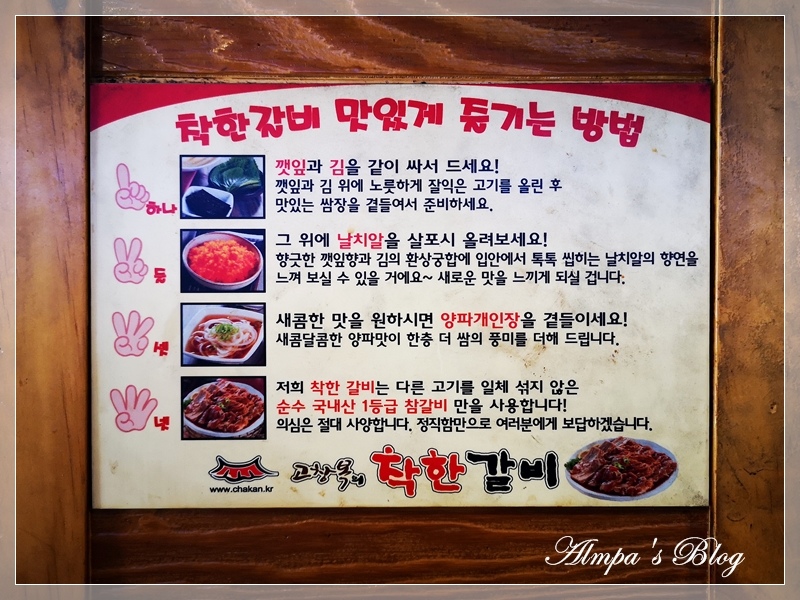 착한갈비 맛있게 즐기는 방법
하나
깻잎과 김을 같이 싸서 드세요!
깻잎과 김 위에 노릇하게 잘익은 고기를 올린 후
맛있는 쌈장을 곁들여서 준비하세요.
둘
그 위에 날치알을 살포시 올려보세요!
향긋한 깻잎향과 김의 환상궁합에 입안에서 톡톡 씹히는 날치알의 향연을
느껴 보실 수 있을 거에요~ 새로운 맛을 느끼게 되실 겁니다.
셋
새콤한 맛을 원하시면 양파개인장을 곁들이세요!
새콤달콤한 양파맛이 한층 더 쌈의 풍미를 더해 드립니다.
넷
저희 착한 갈비는 다른 고기를 일체 섞지 않은
순수 국내산 1등급 참갈비 만을 사용합니다!
의심은 절대 사양합니다. 정직함만으로 여러분에게 보답하겠습니다.
www.chakan.kr
고창복의 착한갈비
Almpa's Blog